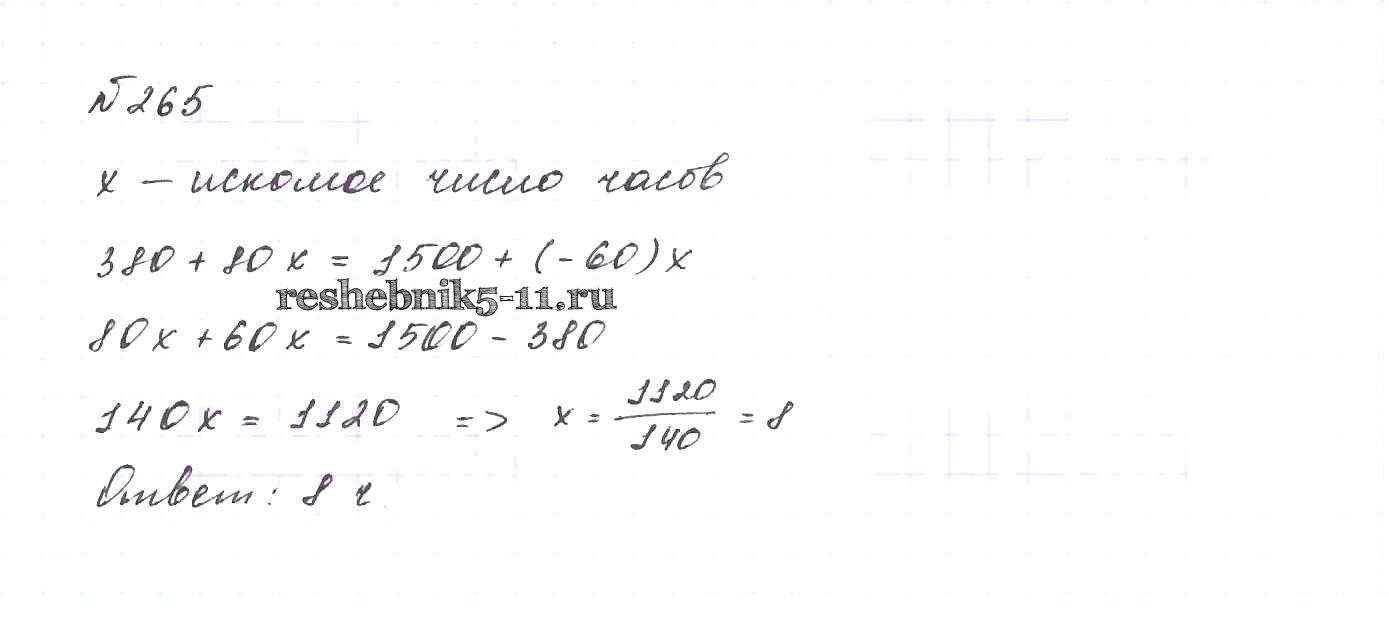 № 265
x – искомое число часов
380 + 80 x = 1500 + (-60) x
reshebnik5-11.ru
80 x + 60 x = 1500 - 380
140 x = 1120 => x = 1120/140 = 8
Ответ: 8 ч